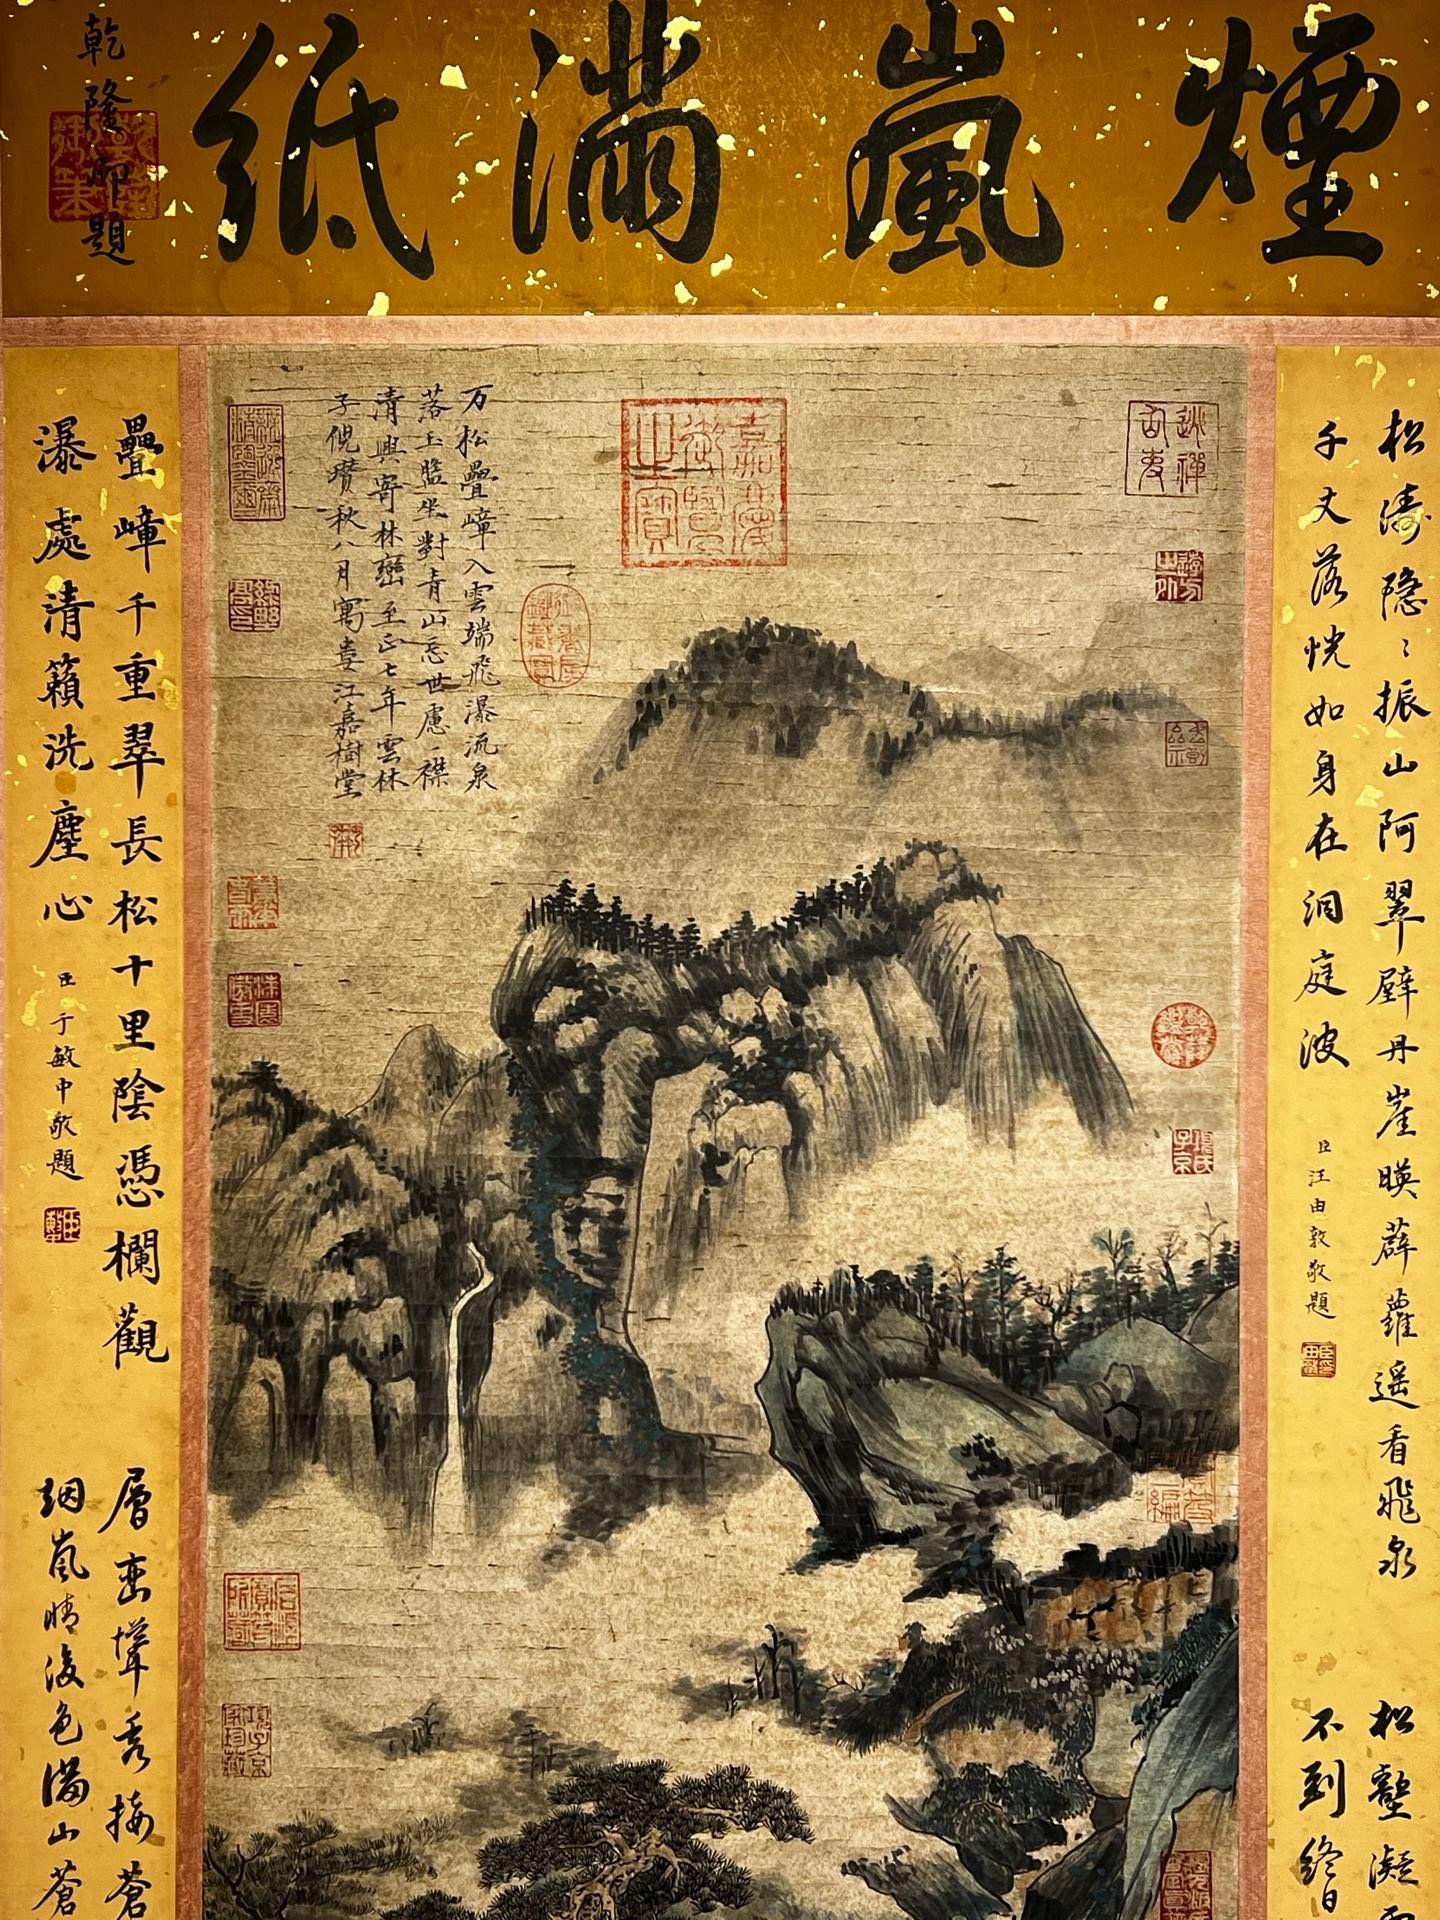 煙嵐滿紙
乾隆御題
松濤隐〻振山阿翠壁丹崖暎薜蘿遥看飛泉
千丈落恍如身在洞庭波
臣汪由敦敬題
松壑凝
不到終日
万松疊嶂入雲端飛瀑流泉
落玉盤坐對青山忘世慮一襟
清興寄林巒至正七年雲林
子倪瓚秋八月寓婁江嘉樹堂
嘉慶御覽之寶
疊嶂千重翠長松十里陰憑欄觀
瀑處清籟洗塵心
臣于敏中敬題
層巒聳秀接蒼
烟嵐晴後色滿山蒼